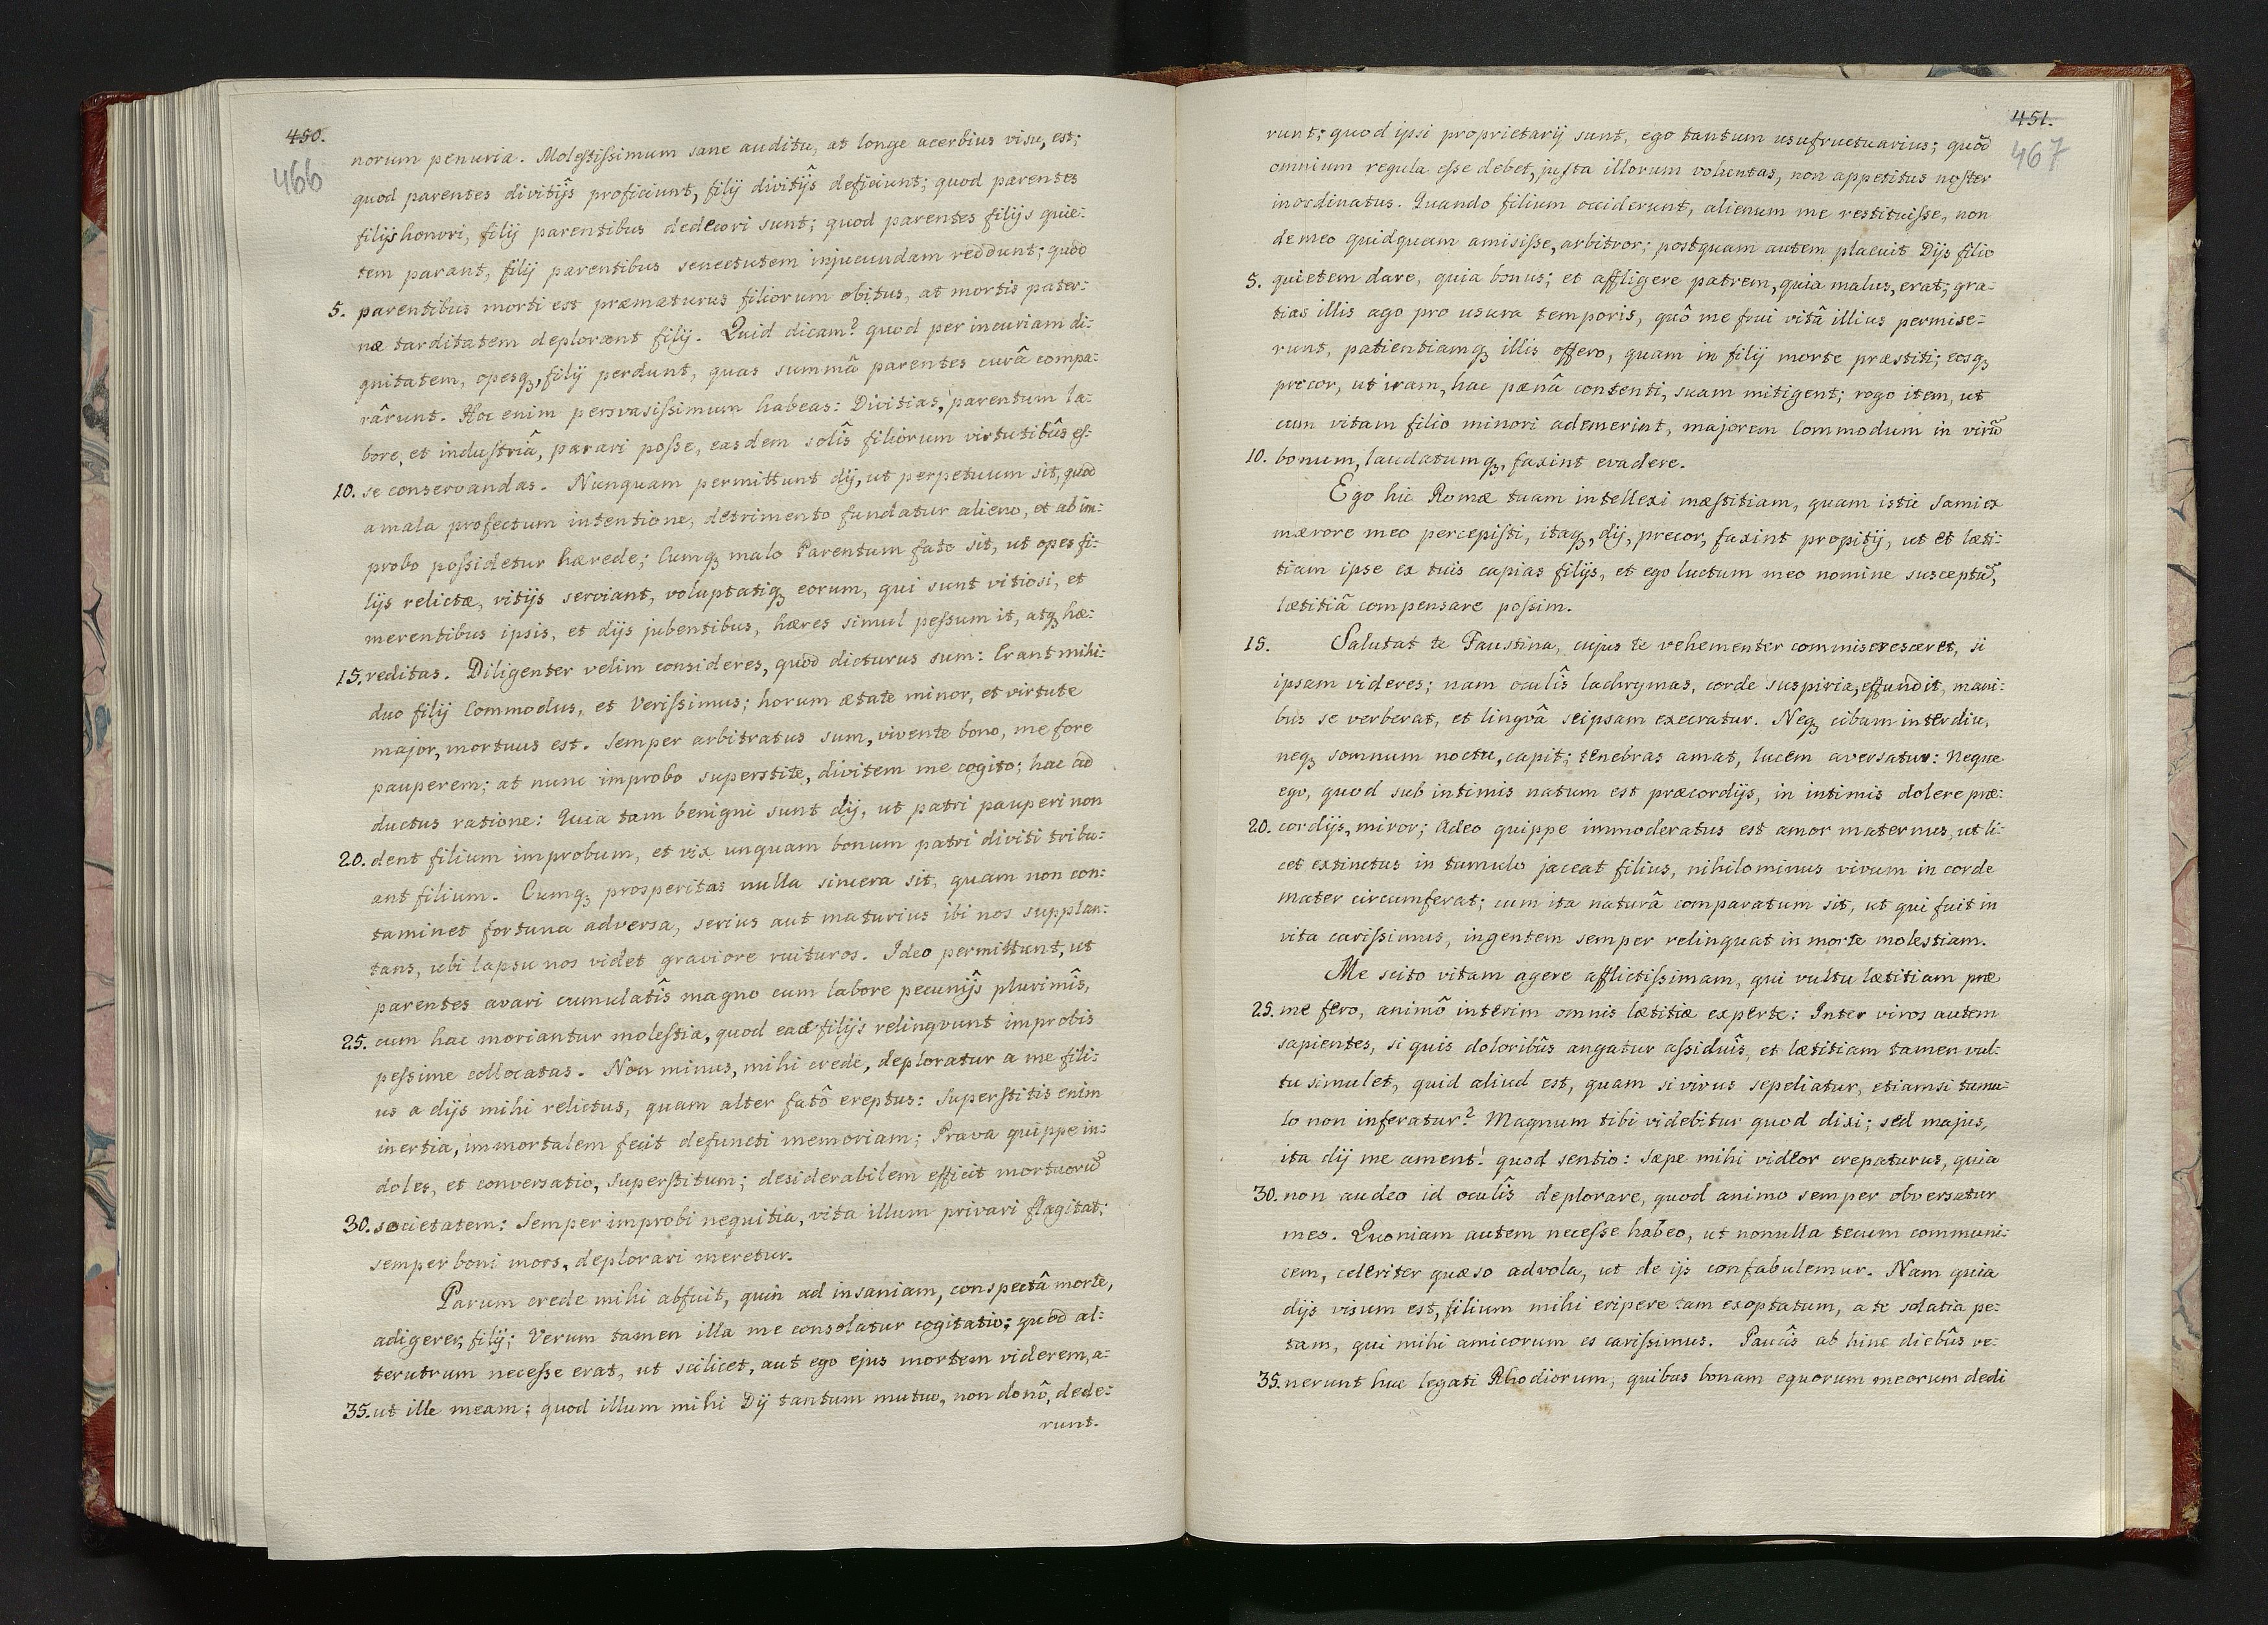 450.
466
norum penuria. Molestissimum sane auditu, at longe acerbius visu, est;
quod parentes divitijs proficiunt, filij divitijs deficiunt; quod parentes
filijs honori, filij parentibus dedecori sunt; quod parentes filijs quie:
tem parant, filij parentibus senectutem injucundam reddunt; quod
5. parentibus morti est præmaturus filiorum obitus, at mortis pater:
næ tarditatem deplorant filij. Quid dicam? quod per incuriam di:
gnitatem, opesqȝ, filij perdunt, quas summâ parentes curâ compa:
rârunt. Hoc enim persvasissimum habeas: Divitias, parentum la:
bore, et industriâ, parari posse, easdem solîs filiorum virtutibûs es:
10. se conservandas. Nunquam permittunt dij, ut perpetuum sit, quod
a mala profectum intentione, detrimento fundatur alieno, et ab im:
probo possidetur hærede; Cumqȝ malo Parentum fato sit, ut opes fi:
lijs relictæ, vitijs serviant, voluptatiqȝ eorum, qui sunt vitiosi, et
merentibus ipsis, et dijs jubentibus, hæres simul pessum it, atqȝ hæ:
15. reditas. Diligenter velim consideres, quod dicturus sum: Erant mihi:
duo filij Commodus, et Verissimus; horum ætate minor, et virtute
major, mortuus est. Semper arbitratus sum, vivente bono, me fore
pauperem; at nunc improbo superstite, divitem me cogito; hac ad
ductus ratione: Quia tam benigni sunt dij, ut patri pauperi non
20. dent filium improbum, et vix unquam bonum patri diviti tribu:
ant filium. Cumqȝ prosperitas nulla sincera sit, quam non con:
taminet fortuna adversa, serius aut maturius ibi nos supplan:
tans, ubi lapsu nos videt graviore ruituros. Ideo permittunt, ut
parentes avari cumulatîs magno cum labore pecunijs plurimîs,
25. cum hac moriantur molestia, quod eas filijs relinqvunt improbis
pessime collocatas. Non minus, mihi crede, deploratur a me fili:
us a dijs mihi relictus, quam alter fatô ereptus: Superstitis enim
inertia, immortalem fecit defuncti memoriam; Prava quippe in:
doles, et conversatio, Superstitum; desiderabilem efficit mortuorū
30. societatem: Semper improbi nequitia, vita illum privari flagitat;
semper boni mors, deplorari meretur.
Parum crede mihi abfuit, quin ad insaniam, conspectâ morte,
adigerer, filij; Verum tamen illa me consolatur cogitatio; quod al:
terutrum necesse erat, ut scilicet, aut ego ejus mortem viderem, a:
35. ut ille meam; quod illum mihi Dij tantum mutuo, non donô, dede:
runt.
451.
467
runt; quod ipsi proprietarij sunt, ego tantum usufructuarius; quod
omnium regula esse debet, justa illorum voluntas, non appetitus noster
inordinatus. Quando filium occiderunt, alienum me restituisse, non
de meo quidquam amisisse, arbitror; postquam autem placuit Dijs filio
5. quietem dare, quia bonus; et affligere patrem, quia malus, erat; gra:
tias illis ago pro usura temporis, quô me frui vitâ illius permise:
runt, patientiamqȝ illis offero, quam in filij morte præstiti; eosqȝ
precor, ut iram, hac pænâ contenti, suam mitigent; rogo item, ut
cum vitam filio minori ademerint, majorem Commodum in virū
10. bonum, laudatumqȝ, faxint evadere.
Ego hic Romæ tuam intellexi mæstitiam, quam istic Sami ex
mærore meo percepisti, itaqȝ, dij, precor, faxint propitij, ut et læti:
tiam ipse ex tuis capias filijs, et ego luctum meo nomine susceptū,
lætitiâ compensare possim.
15. Salutat te Faustina, cujus te vehementer commiseresceret, si
ipsam videres; nam oculîs lachrymas, corde suspiria, effundit, mani:
bus se verberat, et lingvâ seipsam execratur. Neqȝ cibum interdiu,
neqȝ somnum noctu, capit; tenebras amat, lucem aversatur: Neque
ego, quod sub intimis natum est præcordijs, in intimis dolere præ:
20. cordijs, miror; Adeo quippe immoderatus est amor maternus, ut li:
cet extinctus in tumulo jaceat filius, nihilominus vivum in corde
mater circumferat; cum ita naturâ comparatum sit, ut qui fuit in
vita carissimus, ingentem semper relinquat in morte molestiam.
Me scito vitam agere afflictissimam, qui vultu lætitiam præ
25. me fero, animô interim omnis lætitiæ experte: Inter viros autem
sapientes, si quis doloribûs angatur assiduîs, et lætitiam tamen vul:
tu simulet, quid aliud est, quam si vivus sepeliatur, etiamsi tumu:
lo non inferatur? Magnum tibi videbitur quod dixi; sed majus,
ita dij me ament! quod sentio: Sæpe mihi videor crepaturus, quia
30. non audeo id oculîs deplorare, quod animo semper obversatur
meo. Quoniam autem necesse habeo, ut nonulla tecum communi:
cem, celeriter quæso advola, ut de ijs confabulemur. Nam quia
dijs visum est, filium mihi eripere tam exoptatum, a te solatia pe:
tam, qui mihi amicorum es carissimus. Paucîs ab hinc diebûs ve:
35. nerunt huc legati Rhodiorum, quibus bonam equorum meorum dedi